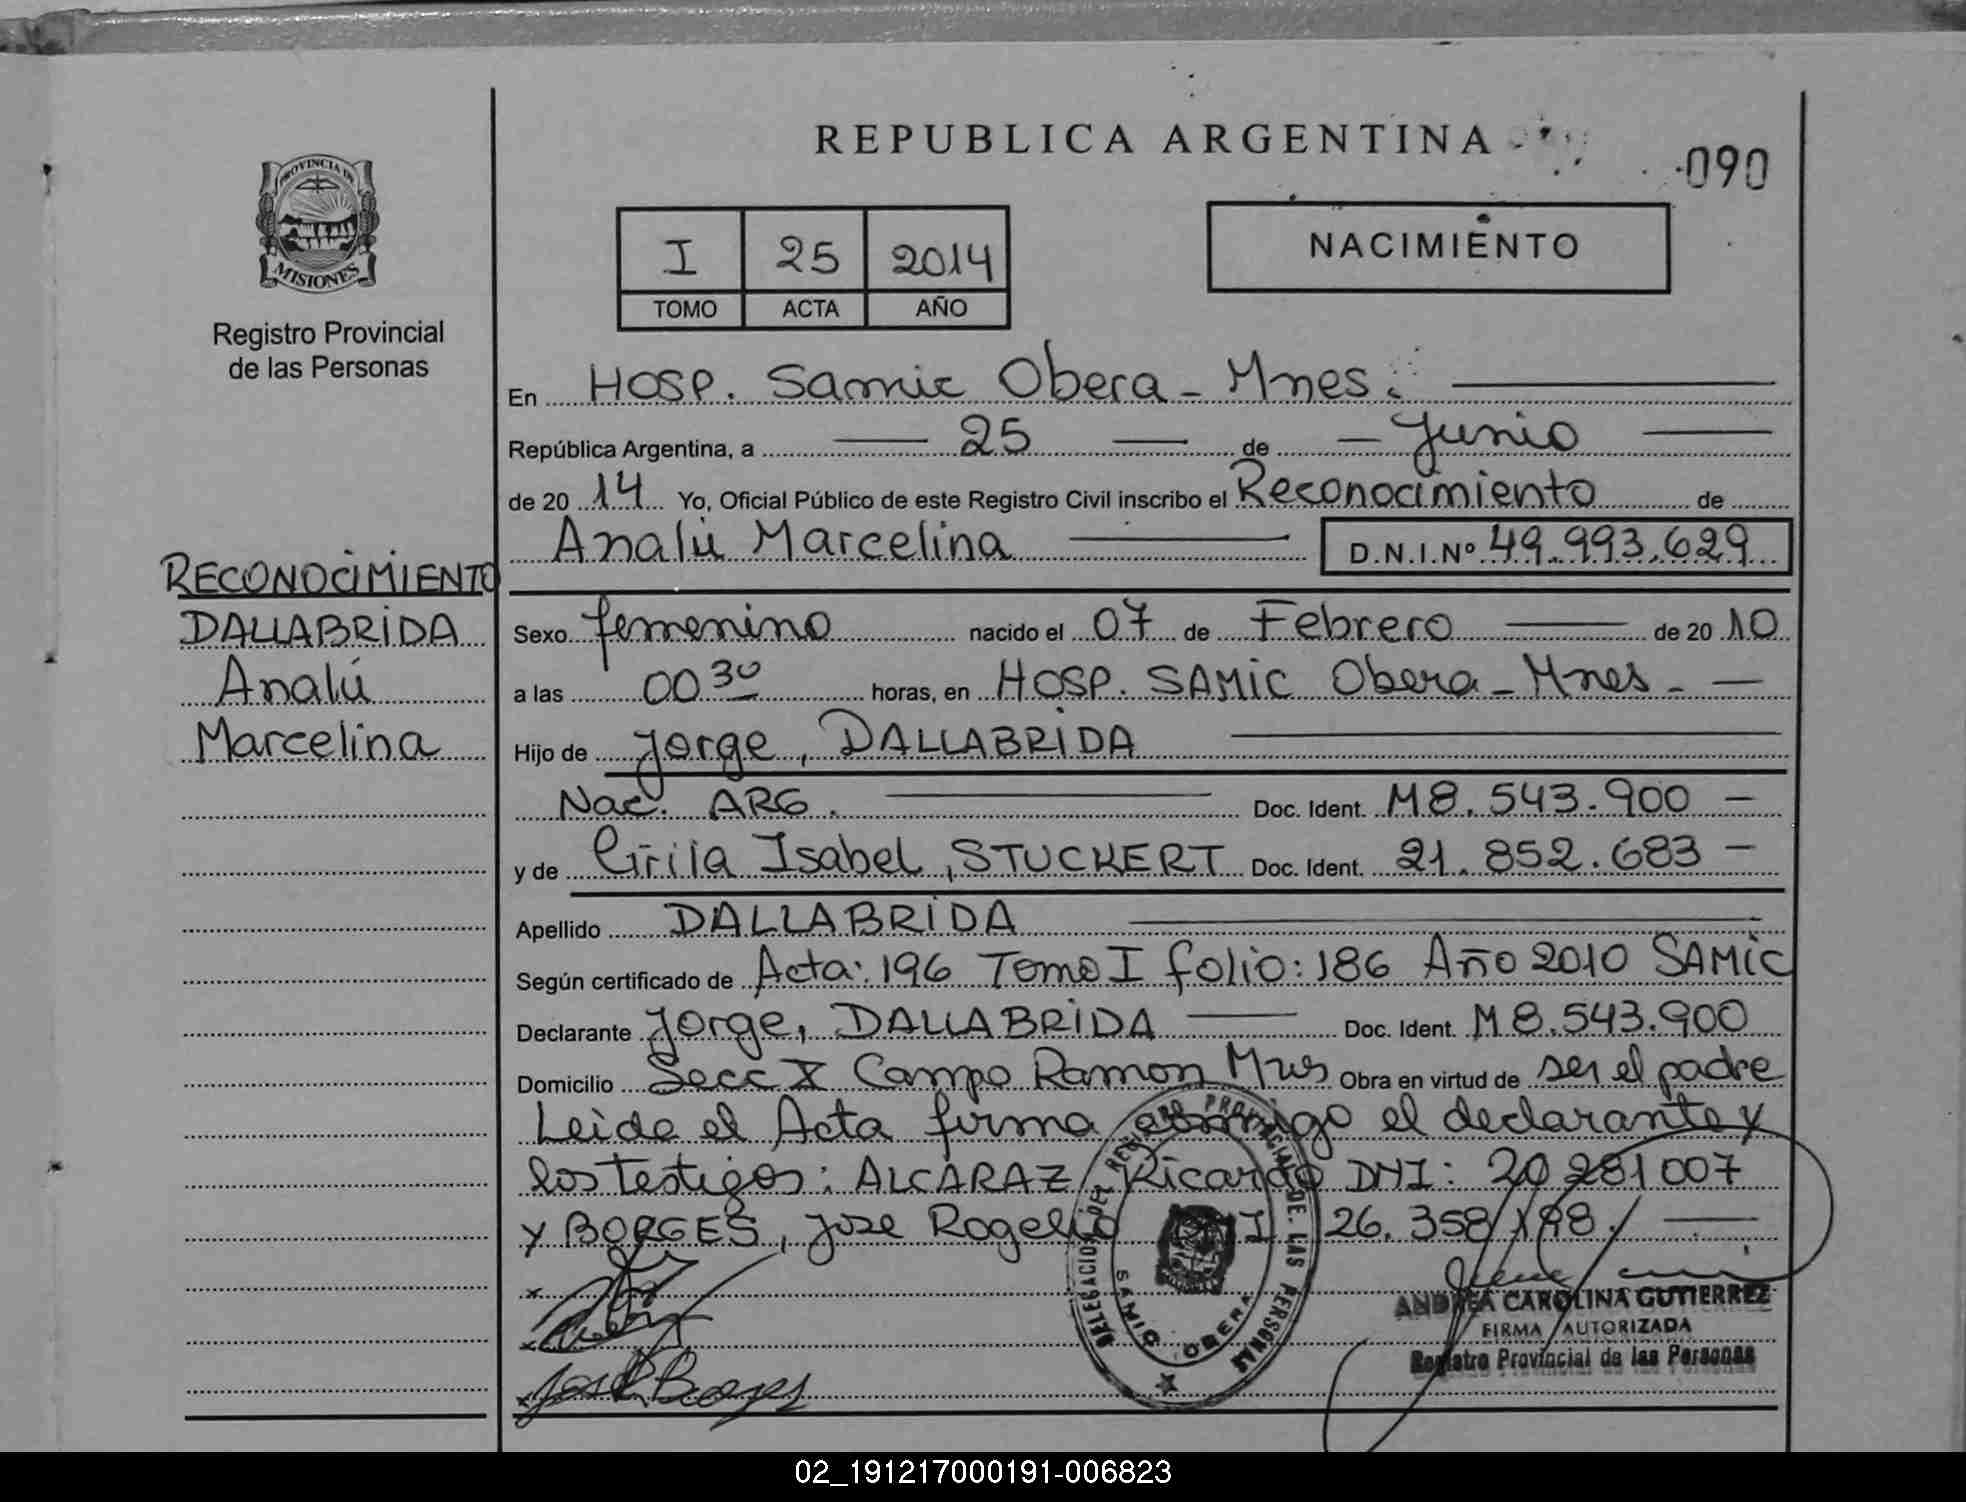 REPUBLICA ARGENTINA
090
PROVINCIA DE
MISIONES
Registro Provincial
de las Personas
I 25 2014
TOMO ACTA AÑO
NACIMIENTO
En HOSP. Samic Obera - Mnes.
República Argentina, a 25 de Junio
de 20 14 Yo, Oficial Público de este Registro Civil inscribo el Reconocimiento de
Analú Marcelina D.N.I.Nº 49.993.629
RECONOCIMIENTO
DALLABRIDA
Analú
Marcelina
Sexo femenino nacido el 07 de Febrero de 20 10
a las 00 30 horas, en HOSP. SAMIC Obera - Mnes -
Hijo de Jorge, DALLABRIDA
Nac. ARG. Doc. Ident. M8.543.900 -
y de Cirila Isabel, STUCKERT Doc. Ident. 21.852.683 -
Apellido DALLABRIDA
Según certificado de Acta: 196 Tomo I folio: 186 Año 2010 SAMIC
Declarante Jorge, DALLABRIDA Doc. Ident. M8.543.900
Domicilio Secc X Campo Ramon Mnes Obra en virtud de ser el padre
Leida el Acta firma conmigo el declarante y
los testigos: ALCARAZ, Ricardo DNI: 20 281 007
y BORGES, Jose Rogelio I 26.358.198.
DELEGACION DEL REGISTRO PROVINCIAL DE LAS PERSONAS
SAMIC OBERA
ANDREA CAROLINA GUTIERREZ
FIRMA AUTORIZADA
Registro Provincial de las Personas
José R Borges
02_191217000191-006823